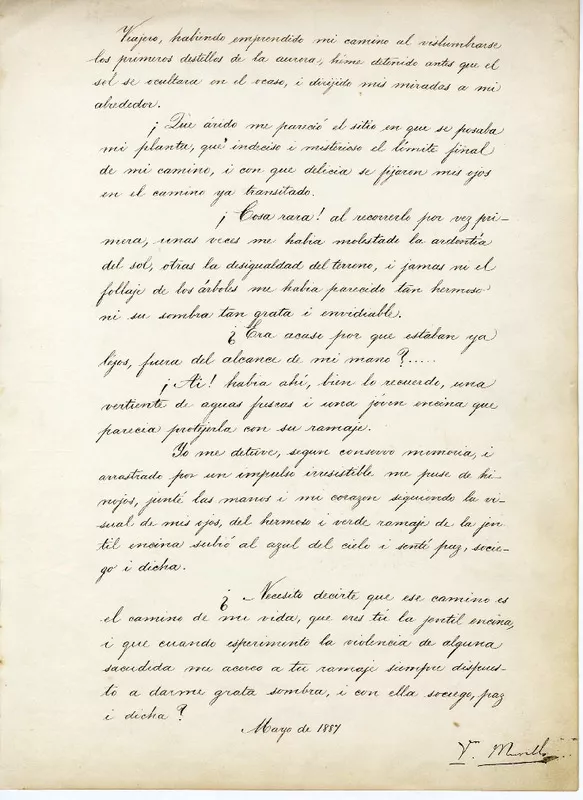 Viajero, habiendo emprendido mi camino al vislumbrarse
los primeros destellos de la aurora, héme detenido antes que el
sol se ocultara en el ocaso, i dirijido mis miradas a mi
alrededor.
¡Que árido me pareció el sitio en que se posaba
mi planta, qué indeciso i misterioso el límite final
de mi camino, i con que delicia se fijaron mis ojos
en el camino ya transitado.
¡Cosa rara! al recorrerlo por vez pri-
mera, unas veces me habia molestado la ardentía
del sol, otras la desigualdad del terreno, i jamas ni el
follaje de los árboles me habia parecido tan hermoso
ni su sombra tan grata i envidiable.
¿Era acaso por que estaban ya
lejos, fuera del alcance de mi mano?.....
¡Ai! habia ahí, bien lo recuerdo, una
vertiente de aguas frescas i una jóven encina que
parecia protejerla con su ramaje.
Yo me detuve, segun conservo memoria, i
arrastrado por un impulso irresistible me puse de hi-
nojos, junté las manos i mi corazon siguiendo la vi-
sual de mis ojos, del hermoso i verde ramaje de la jen-
til encina subió al azul del cielo i sentí paz, socie-
go i dicha.
¿Necesito decirte que ese camino es
el camino de mi vida, que eres tú la jentil encina,
i que cuando esperimento la violencia de alguna
sacudida me acerco a tu ramaje siempre dispues-
to a darme grata sombra, i con ella sociego, paz
i dicha?
Mayo de 1887